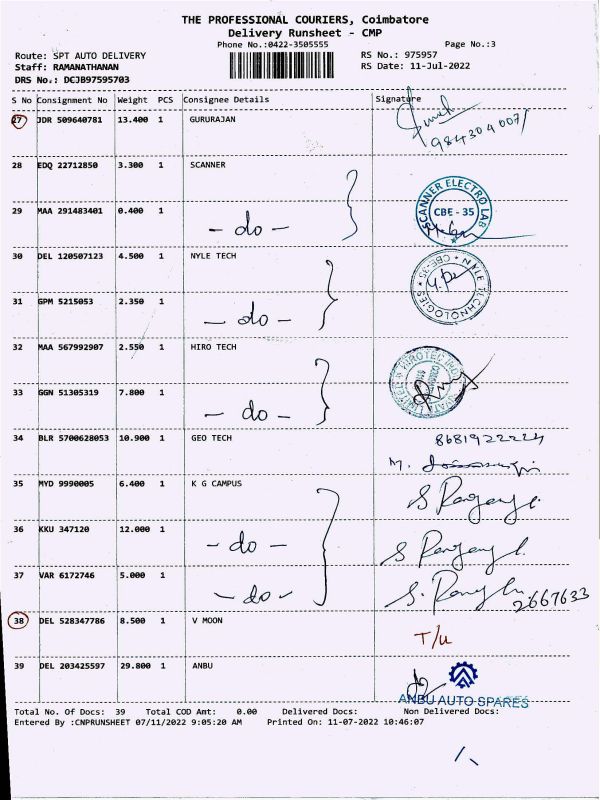 THE PROFESSIONAL COURIERS, Coimbatore
Delivery Runsheet - CMP
Phone No.:0422-3505555 Page No.:3
Route: SPT AUTO DELIVERY RS No.: 975957
Staff: RAMANATHANAN RS Date: 11-Jul-2022
DRS No.: DCJB97595703
S No Consignment No Weight PCS Consignee Details Signature
27 JDR 509640781 13.400 1 GURURAJAN
28 EDQ 22712850 3.300 1 SCANNER
SCANNER ELECTRO LAB
CBE - 35
29 MAA 291483401 0.400 1 - do -
30 DEL 120507123 4.500 1 NYLE TECH
NYLE TECHNOLOGIES
CBE-35
31 GPM 5215053 2.350 1 - do -
32 MAA 567992907 2.550 1 HIRO TECH
33 GGN 51305319 7.800 1 - do -
34 BLR 5700628053 10.900 1 GEO TECH
35 MYD 9990005 6.400 1 K G CAMPUS
36 KKU 347120 12.000 1 - do -
37 VAR 6172746 5.000 1 - do - 2667633
38 DEL 528347786 8.500 1 V MOON T/u
39 DEL 203425597 29.800 1 ANBU
ANBU AUTO SPARES
Total No. Of Docs: 39 Total COD Amt: 0.00 Delivered Docs: Non Delivered Docs:
Entered By :CNPRUNSHEET 07/11/2022 9:05:20 AM Printed On: 11-07-2022 10:46:07